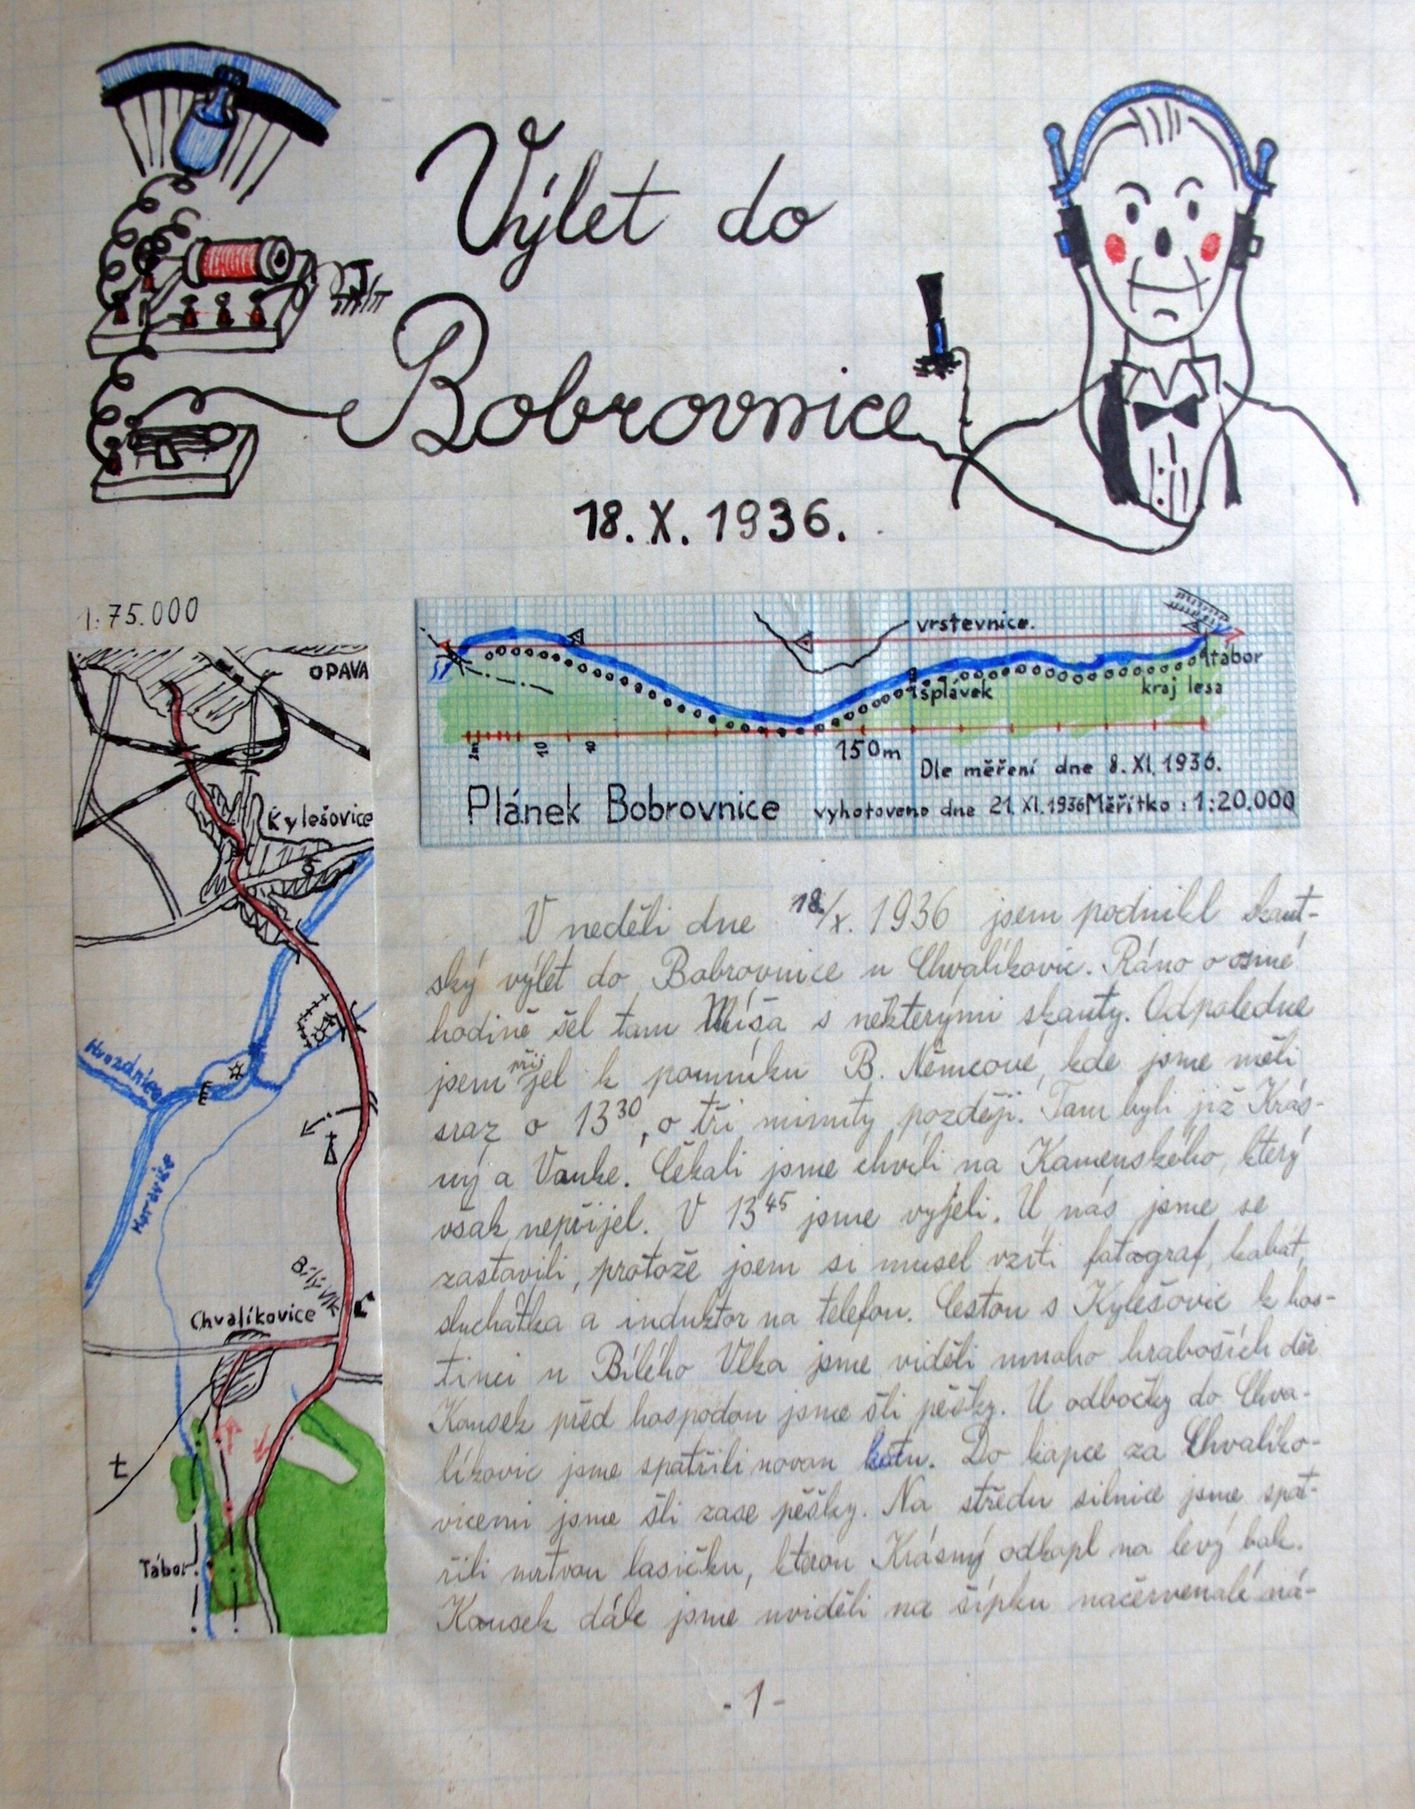 Výlet do
Bobrovnice
18. X. 1936.
1:75.000
OPAVA
Kylešovice
Hvozdnice
Moravice
Bílý Vlk
Chvalíkovice
Tábor
vrstevnice.
tábor
splávek
kraj lesa
10
150m
Dle měření dne 8. XI. 1936.
Plánek Bobrovnice vyhotoveno dne 21. XI. 1936 Měřítko : 1:20.000
V neděli dne 18./X. 1936 jsem podnikl skaut-
ský výlet do Bobrovnice u Chvalíkovic. Ráno o osmé
hodině šel tam Míša s některými skauty. Odpoledne
jsem přijel k pomníku B. Němcové, kde jsme měli
sraz o 13 30, o tři minuty později. Tam byli již Krás-
ný a Vanke. Čekali jsme chvíli na Kamenského, který
však nepřijel. V 13 45 jsme vyjeli. U nás jsme se
zastavili, protože jsem si musel vzíti fotograf, kabát,
sluchátka a induktor na telefon. Cestou s Kylešovic k hos-
tinci u Bílého Vlka jsme viděli mnoho hraboších děr.
Kousek před hospodou jsme šli pěšky. U odbočky do Chva-
líkovic jsme spatřili novou kotu. Do kopce za Chvalíko-
vicemi jsme šli zase pěšky. Na středu silnice jsme spat-
řili mrtvou lasičku, kterou Krásný odkopl na levý bok.
Kousek dále jsme uviděli na šípku načervenalé ná-
- 1 -